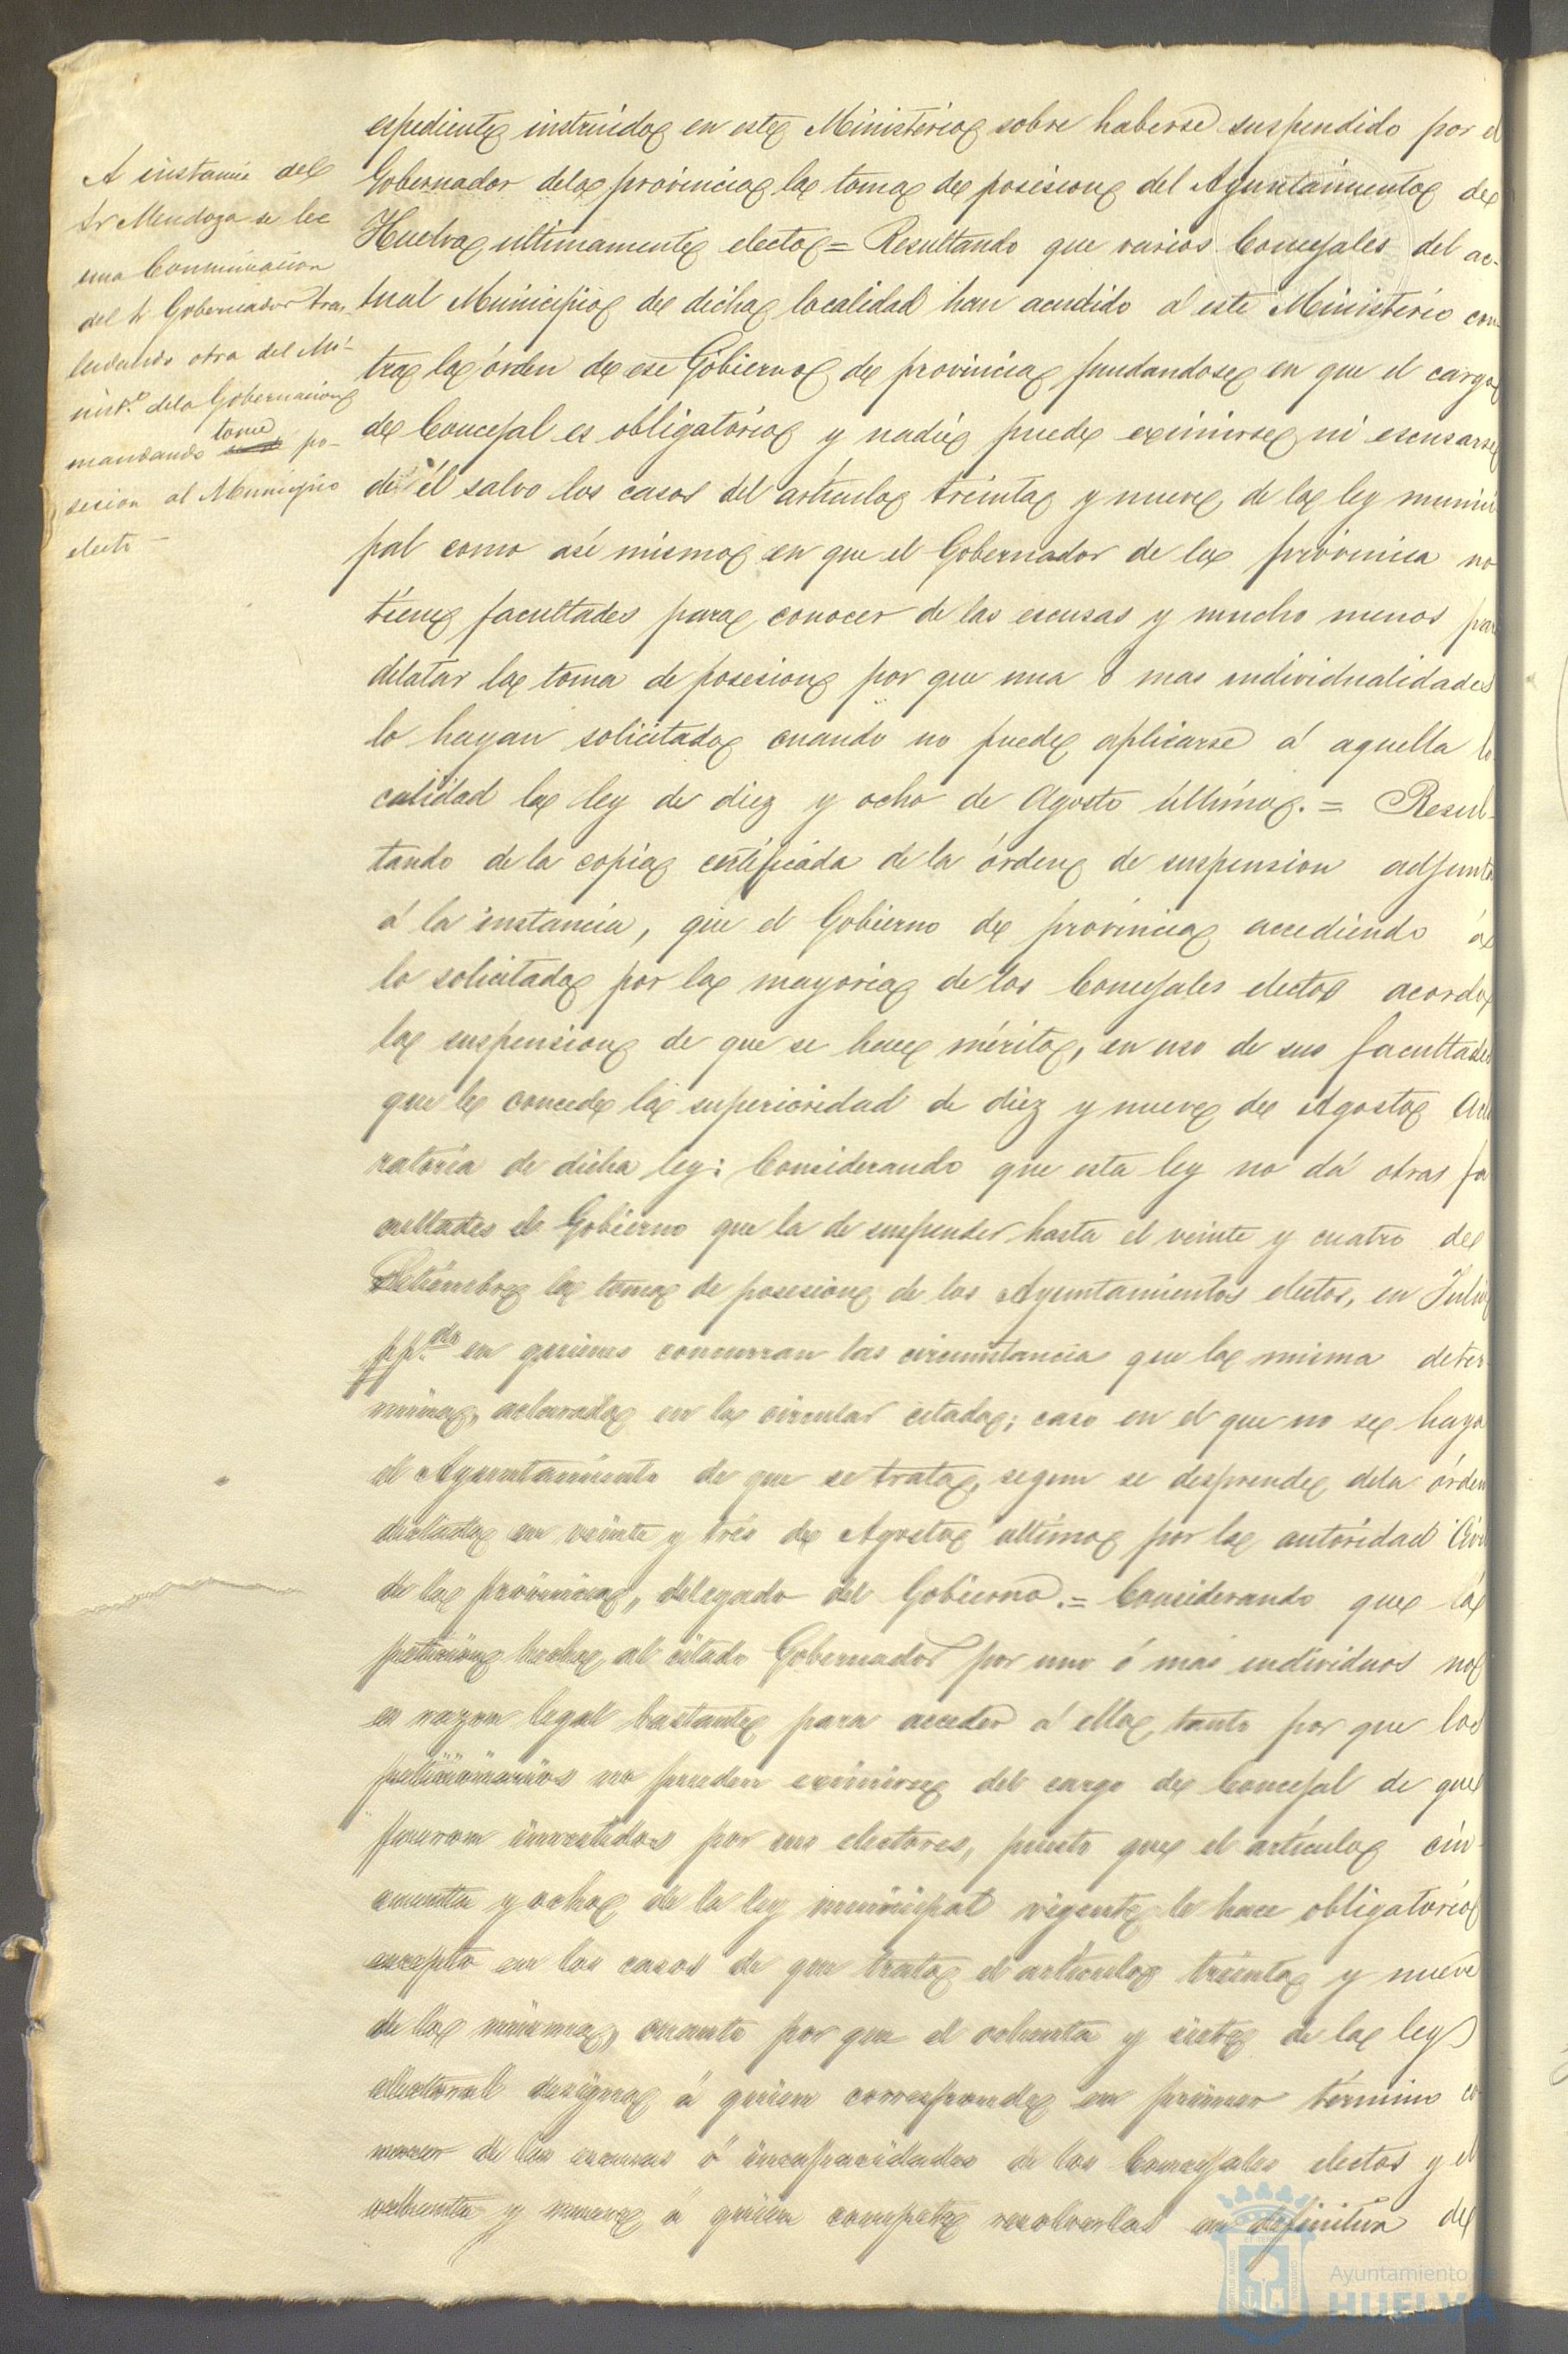 A instancia del
Sr Mendoza se lee
una Comunicacion
del Sr Gobernador tras-
ladando otra del Mi-
nist.º dela Gobernacion
mandando tome po-
sesion al Municipio
electo —
espediente instruido en este Ministerio sobre haberse suspendido por el
Gobernador dela provincia la toma de posesion del Ayuntamiento de
Huelva ultimamente electo = Resultando que varios Concejales del ac-
tual Municipio de dicha localidad han acudido á este Ministerio con-
tra la órden de ese Gobierno de provincia fundandose en que el cargo
de Concejal es obligatorio y nadie puede eximirse ni escusarse
de él salvo los casos del artículo treinta y nueve de la ley munici
pal como asi mismo en que el Gobernador de la provincia no
tiene facultades para conocer de las escusas y mucho menos para
delatar la toma de posesion por que una ó mas individualidades
lo hayan solicitado cuando no puede aplicarse á aquella lo
calidad la ley de diez y ocho de Agosto último. = Resul-
tando de la copia certificada de la órden de suspension adjunta
á la instancia, que el Gobierno de provincia accediendo á
lo solicitado por la mayoria de los Concejales electos acordo
la suspension de que se hace mérito, en uso de sus facultades
que le concede la superioridad de diez y nueve de Agosto acla
ratoria de dicha ley: Considerando que esta ley no dá otras fa
cultades al Gobierno que la de suspender hasta el veinte y cuatro de
Setiembre la toma de posesion de los Ayuntamientos electos, en Julio
pp.do en quienes concurran las circunstancias que la misma deter-
mina, aclarada en la circular citada; caso en el que no se haya
el Ayuntamiento de que se trata, segun se desprende dela órden
dictada en veinte y tres de Agosto último por la autoridad Civil
de la provincia, delegado del Gobierno. = Considerando que la
peticion hecha al citado Gobernador por uno ó mas individuos no
es razon legal bastante para acceder á ella, tanto por que los
peticionarios no pueden eximirse del cargo de Concejal de que
fueron investidos por sus electores, puesto que el artículo cin-
cuenta y ocho de la ley municipal vigente le hace obligatorio
escepto en los casos de que trata el artículo treinta y nueve
de la misma, cuanto por que el ochenta y siete de la ley
electoral designa á quien corresponde en primer término co
nocer de las escusas ó incapacidades de los Concejales electos y el
ochenta y nueve á quien compete resolverlas en definitiva de
Ayuntamiento de
HUELVA